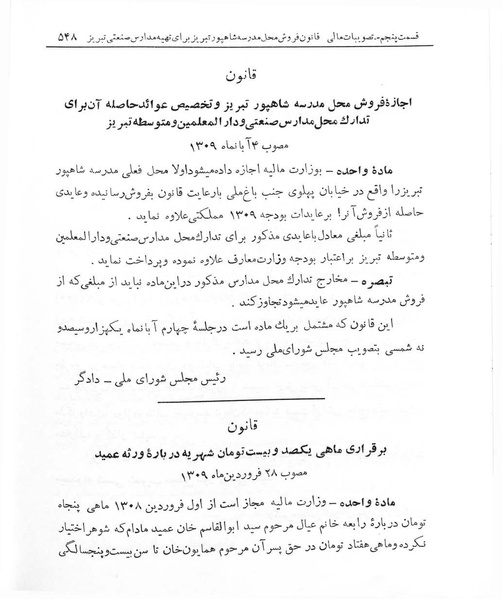 قسمت پنجم - تصویبات مالی قانون فروش محل مدرسه شاهپور تبریز برای تهیه مدارس صنعتی تبریز ۵۴۸
قانون
اجازهٔ فروش محل مدرسه شاهپور تبریز و تخصیص عوائد حاصله آن برای
تدارك محل مدارس صنعتی و دارالمعلمین و متوسطه تبریز
مصوب ۴ آبانماه ۱۳۰۹
مادهٔ واحده - بوزارت مالیه اجازه داده میشود اولا محل فعلی مدرسه شاهپور
تبریز را واقع در خیابان پهلوی جنب باغ ملی با رعایت قانون بفروش رسانیده و عایدی
حاصله از فروش آنرا بر عایدات بودجه ۱۳۰۹ مملکتی علاوه نماید .
ثانیاً مبلغی معادل با عایدی مذکور برای تدارك محل مدارس صنعتی و دارالمعلمین
ومتوسطه تبریز بر اعتبار بودجه وزارت معارف علاوه نموده و پرداخت نماید .
تبصره - مخارج تدارك محل مدارس مذکور در این ماده نباید از مبلغی که از
فروش مدرسه شاهپور عاید میشود تجاوز کند .
این قانون که مشتمل بریك ماده است در جلسهٔ چهارم آبانماه یکهزار و سیصد و
نه شمسی بتصویب مجلس شورای ملی رسید .
رئیس مجلس شورای ملی - دادگر
قانون
برقراری ماهی یکصد و بیست تومان شهریه در بارهٔ ورثه عمید
مصوب ۲۸ فروردین ماه ۱۳۰۹
مادهٔ واحده - وزارت مالیه مجاز است از اول فروردین ۱۳۰۸ ماهی پنجاه
تومان دربارهٔ رابعه خانم عیال مرحوم سید ابوالقاسم خان عمید مادام که شوهر اختیار
نکرده و ماهی هفتاد تومان در حق پسر آن مرحوم همایون خان تا سن بیست و پنجسالگی